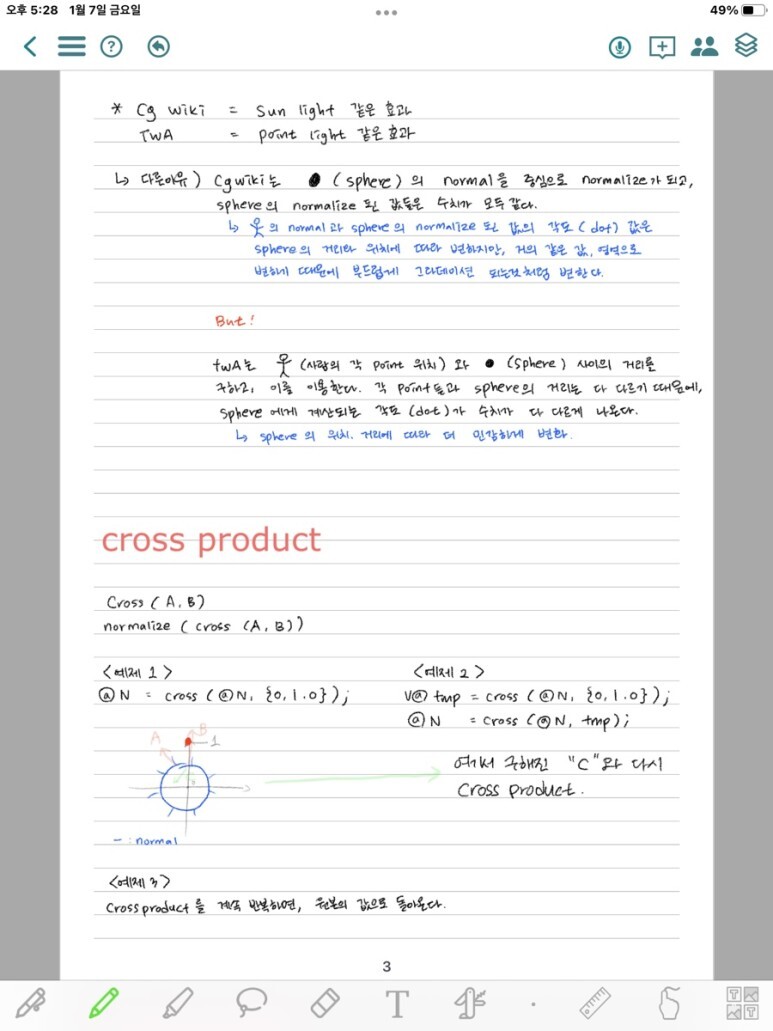 오후 5:28 1월 7일 금요일
49%
* Cg wiki = Sun light 같은 효과
TWA = point light 같은 효과
↳ 다른이유) Cgwiki는 ● (sphere)의 normal을 중심으로 normalize가 되고,
sphere의 normalize 된 값들은 수치가 모두 같다.
↳ 의 normal과 sphere의 normalize 된 값의 각도(dot) 값은
sphere의 거리와 위치에 따라 변하지만, 거의 같은 값, 영역으로
변하기 때문에 부드럽게 그라데이션 되는것처럼 변한다.
But!
twA는 (사람의 각 point 위치) 와 ● (Sphere) 사이의 거리를
구하고, 이를 이용한다. 각 point들과 sphere의 거리는 다 다르기 때문에,
sphere에게 계산되는 각도(dot)가 수치가 다 다르게 나온다.
↳ sphere의 위치, 거리에 따라 더 민감하게 변화.
cross product
Cross(A, B)
normalize (cross (A, B))
<예제 1>
@N = cross(@N, {0,1.0});
<예제 2>
V@ tmp = cross(@N, {0,1.0});
@N = cross(@N, tmp);
A
B
1
여기서 구해진 "C"와 다시
Cross product.
- : normal
<예제 3>
Cross product을 계속 반복하면, 원본의 값으로 돌아온다.
3